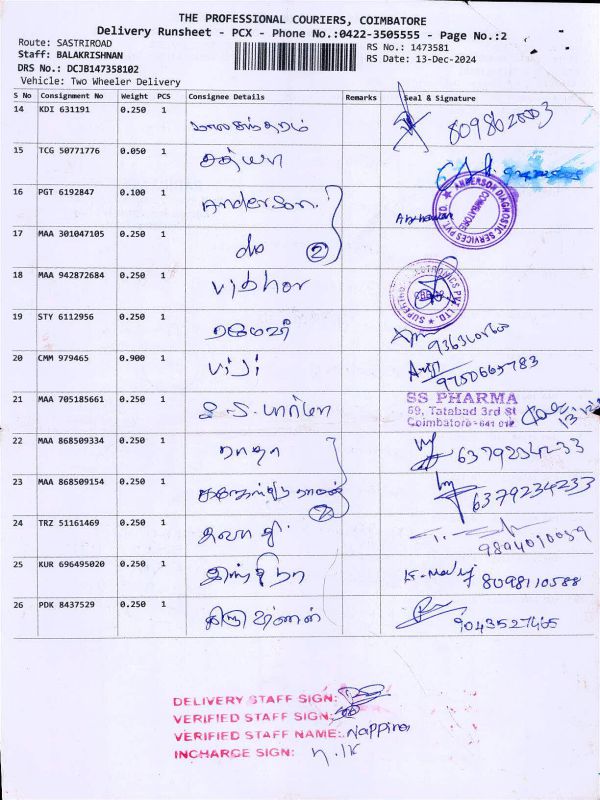 THE PROFESSIONAL COURIERS, COIMBATORE
Delivery Runsheet - PCX - Phone No.:0422-3505555 - Page No.:2
Route: SASTRIROAD
RS No.: 1473581
Staff: BALAKRISHNAN
RS Date: 13-Dec-2024
DRS No.: DCJB147358102
Vehicle: Two Wheeler Delivery
S No Consignment No Weight PCS Consignee Details Remarks Seal & Signature
14 KDI 631191 0.250 1 பாலசுந்தரம்
15 TCG 50771776 0.050 1 சத்யா
16 PGT 6192847 0.100 1 Anderson.
ANDERSON DIAGNOSTIC SERVICES PVT. LTD. COIMBATORE
17 MAA 301047105 0.250 1 do 2
18 MAA 942872684 0.250 1 Vibhor
19 STY 6112956 0.250 1
20 CMM 979465 0.900 1 விஜி
21 MAA 705185661 0.250 1 S.S. பார்மா
SS PHARMA
69, Tatabad 3rd St
Coimbatore - 641 012
22 MAA 868509334 0.250 1 ராதா 6379234233
23 MAA 868509154 0.250 1 6379234233
24 TRZ 51161469 0.250 1 9894010039
25 KUR 696495020 0.250 1 இந்திரா 8098110588
26 PDK 8437529 0.250 1 9043527465
DELIVERY STAFF SIGN:
VERIFIED STAFF SIGN:
VERIFIED STAFF NAME: Nappina
INCHARGE SIGN: